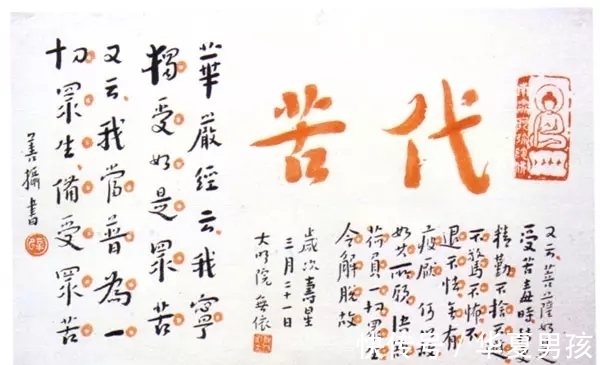 代苦
又云菩薩如是
受苦毒時轉
精勤不捨不避
不驚不怖不
退不怯无有
疲厭何以故
如其所願決
荷負一切眾生
令解脫故
歲次壽星
三月二十一日
大明院無依
華嚴經云我寧
獨受如是眾苦
又云我當普為一
切眾生備受眾苦
善攝書
快傳号/华夏男孩